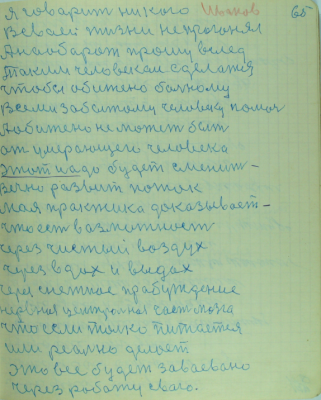 Я говарит никого Иванов 65
В своей жизни не прогонял
А наоборот прошу вслед
Таким человекам сделатся
чтобы обижено больному
Всеми забытому человеку помоч
А обижено не может быт
от умерающего человека
этот надо будет сменит-
вечно развит поток
мая практика доказывает-
что ест вазможност
через чистый воздух
через вдох и выдох
через снежное прабуждение
нервная центральная част мозга
что если толко питается
или реално делает
это все будет заваевано
через работу сваю.